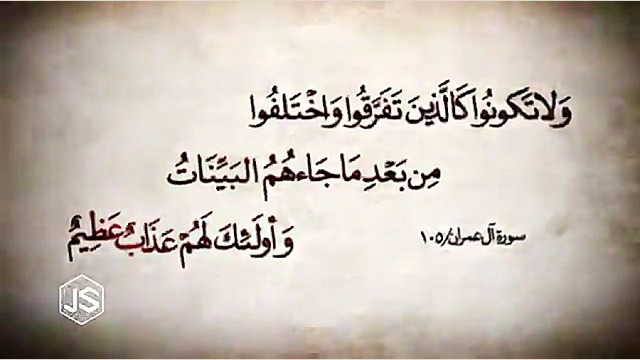 وَلَا تَكُونُوا كَالَّذِينَ تَفَرَّقُوا وَاخْتَلَفُوا
مِن بَعْدِ مَا جَاءَهُمُ البَيِّنَاتُ
وَأُولَئِكَ لَهُمْ عَذَابٌ عَظِيمٌ
سورة آل عمران/١٠٥
JS